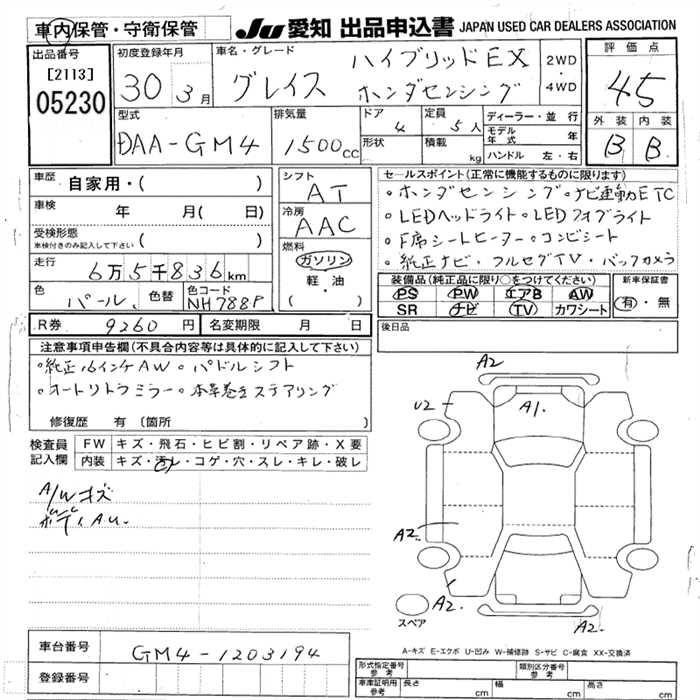 車内保管・守衛保管 JU 愛知 出品申込書 JAPAN USED CAR DEALERS ASSOCIATION
出品番号 [2113] 05230
初度登録年月 30 3月
車名・グレード グレイス ハイブリッドEX ホンダセンシング
2WD・4WD
評価点 4.5
外装 B 内装 B
型式 DAA-GM4
排気量 1500cc
ドア 4 形状
定員 5人 積載 kg
ディーラー・並行
モデル年式 年
ハンドル 左・右
車歴 自家用・( )
車検 年 月( 日)
受検形態 車検付きのみ記入して下さい ( )
走行 6万5千836km
色 パール 色替 色コード NH788P
シフト AT
冷房 AAC
燃料 ガソリン 軽油 ・( )
セールスポイント(正常に機能するものに限ります)
。ホンダセンシング。ナビ連動ETC
。LEDヘッドライト。LEDフォグライト
。F席シートヒーター。コンビシート
。純正ナビ・フルセグTV・バックカメラ
装備品(純正品に限り○をつけてください)
PS PW エアB AW
SR ナビ TV カワシート
新車保証書 有・無
R券 9260円 名変期限 月 日
後日品
注意事項申告欄(不具合内容等は具体的に記入して下さい)
。純正16インチAW。パドルシフト
。オートリトラミラー。本革巻きステアリング
修復歴 有 〔箇所
検査員記入欄
FW キズ・飛石・ヒビ割・リペア跡・X要
内装 キズ・汚レ・コゲ・穴・スレ・キレ・破レ
A/Wキズ
ボディAU.
A2
U2
A1.
A2
A2.
A2.
スペア
車台番号 GM4-1203194
登録番号
A-キズ E-エクボ U-凹み W-補修跡 S-サビ C-腐食 XX-交換済
形式指定番号 参考 類別区分番号 参考
車庫証明用 参考 長さ cm 幅 cm 高さ cm